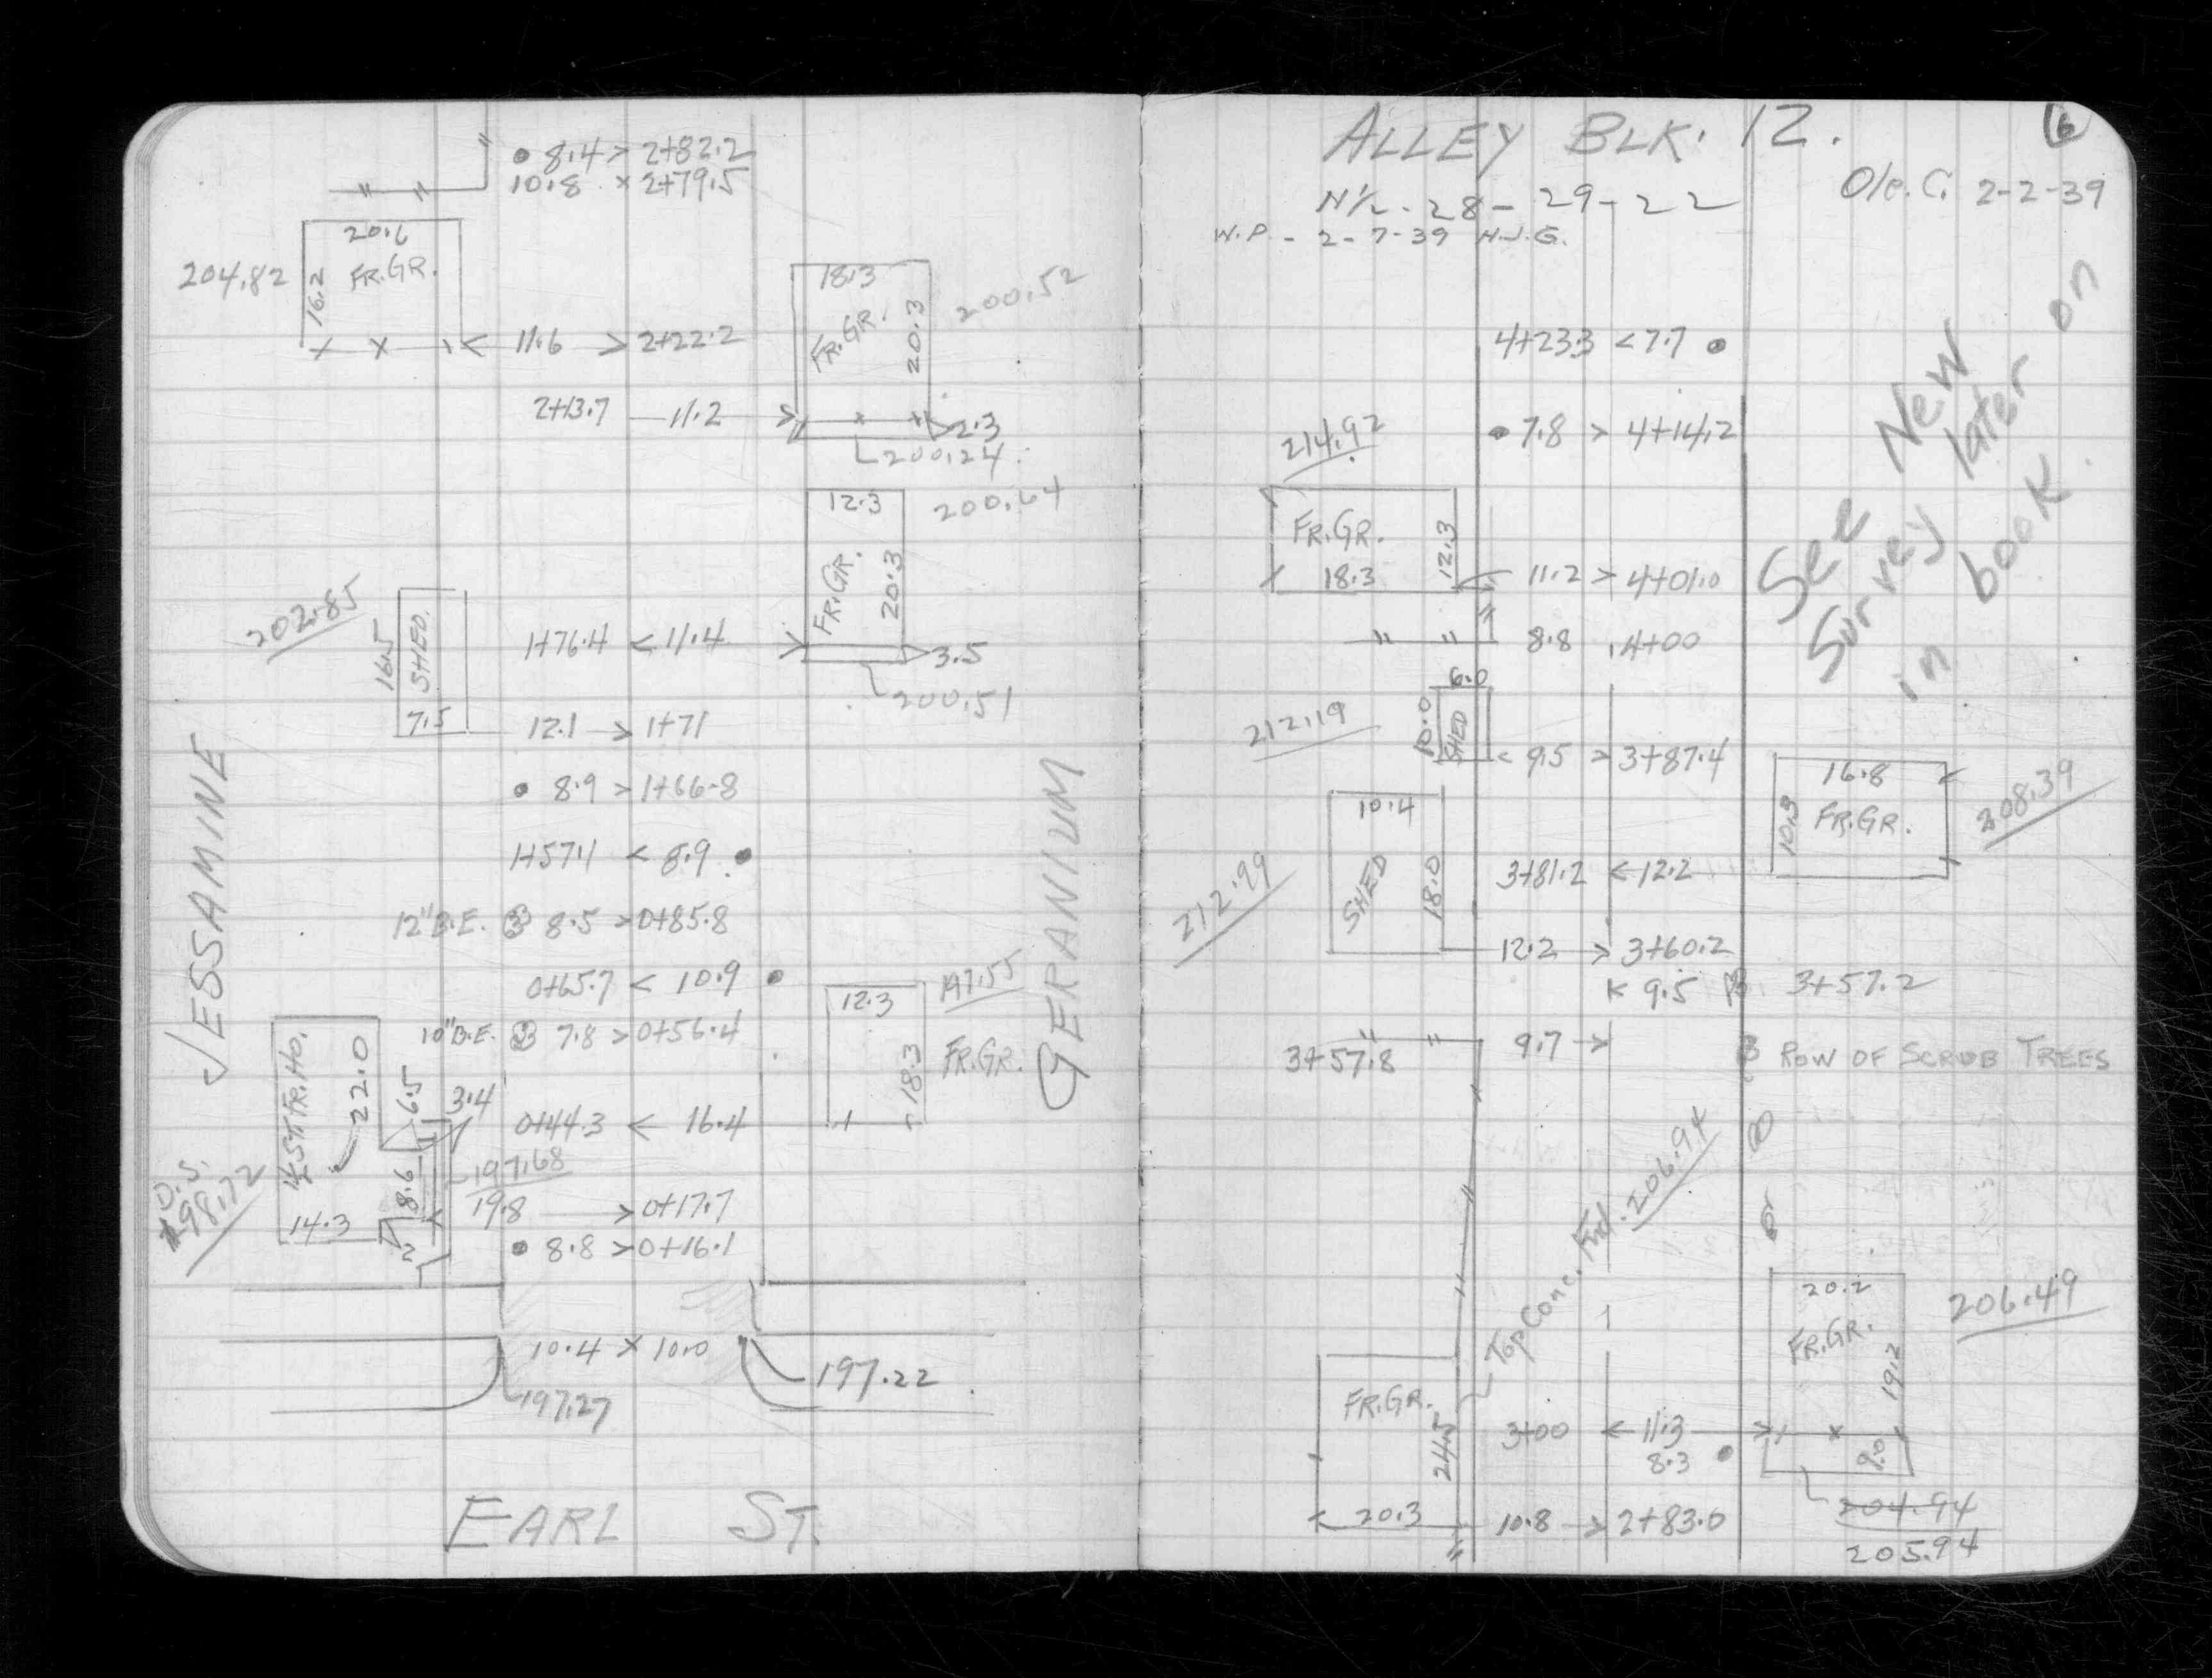 8.4 > 2+82.2
10.8 x 2+79.5
20.6
204.82
16.2
FR.GR.
11.6 > 2+22.2
18.3
FR.GR.
20.3
200.52
2+13.7 11.2
2.3
200.24
12.3
200.64
FR.GR.
20.3
202.85
16.5
SHED.
7.5
1+76.4 < 11.4
3.5
200.51
12.1 > 1+71
8.9 > 1+66.8
1+57.1 < 8.9
12" B.E. 8.5 > 0+85.8
0+65.7 < 10.9
197.55
12.3
18.3
FR.GR.
10" B.E. 7.8 > 0+56.4
JESSAMINE
GERANIUM
FR.HO.
22.0
14.3
6.5
3.4
8.6
2
0+44.3 < 16.4
197.68
O.S.
198.72
19.8 > 0+17.7
8.8 > 0+16.1
10.4 x 10.0
197.27
197.22
EARL ST.
ALLEY BLK. 12.
6
N½ - 28 - 29 - 22
Ole. C. 2-2-39
W.P. - 2-7-39 H.J.G.
See New
Survey later on
in book
4+23.3 < 7.7
7.8 > 4+14.2
214.92
FR.GR.
18.3
12.3
11.2 > 4+01.0
8.8 4+00
6.0
10.0
SHED
212.19
< 9.5 > 3+87.4
16.8
10.3
FR.GR.
208.39
10.4
SHED
18.0
212.99
3+81.2 < 12.2
12.2 > 3+60.2
< 9.5 3+57.2
3+57.8 9.7 >
ROW OF SCRUB TREES
Top Conc. Fnd. 206.94
20.2
FR.GR.
19.2
206.49
FR.GR.
24.5
20.3
3+00 < 11.3 >
8.3
9.0
10.8 > 2+83.0
204.94
205.94